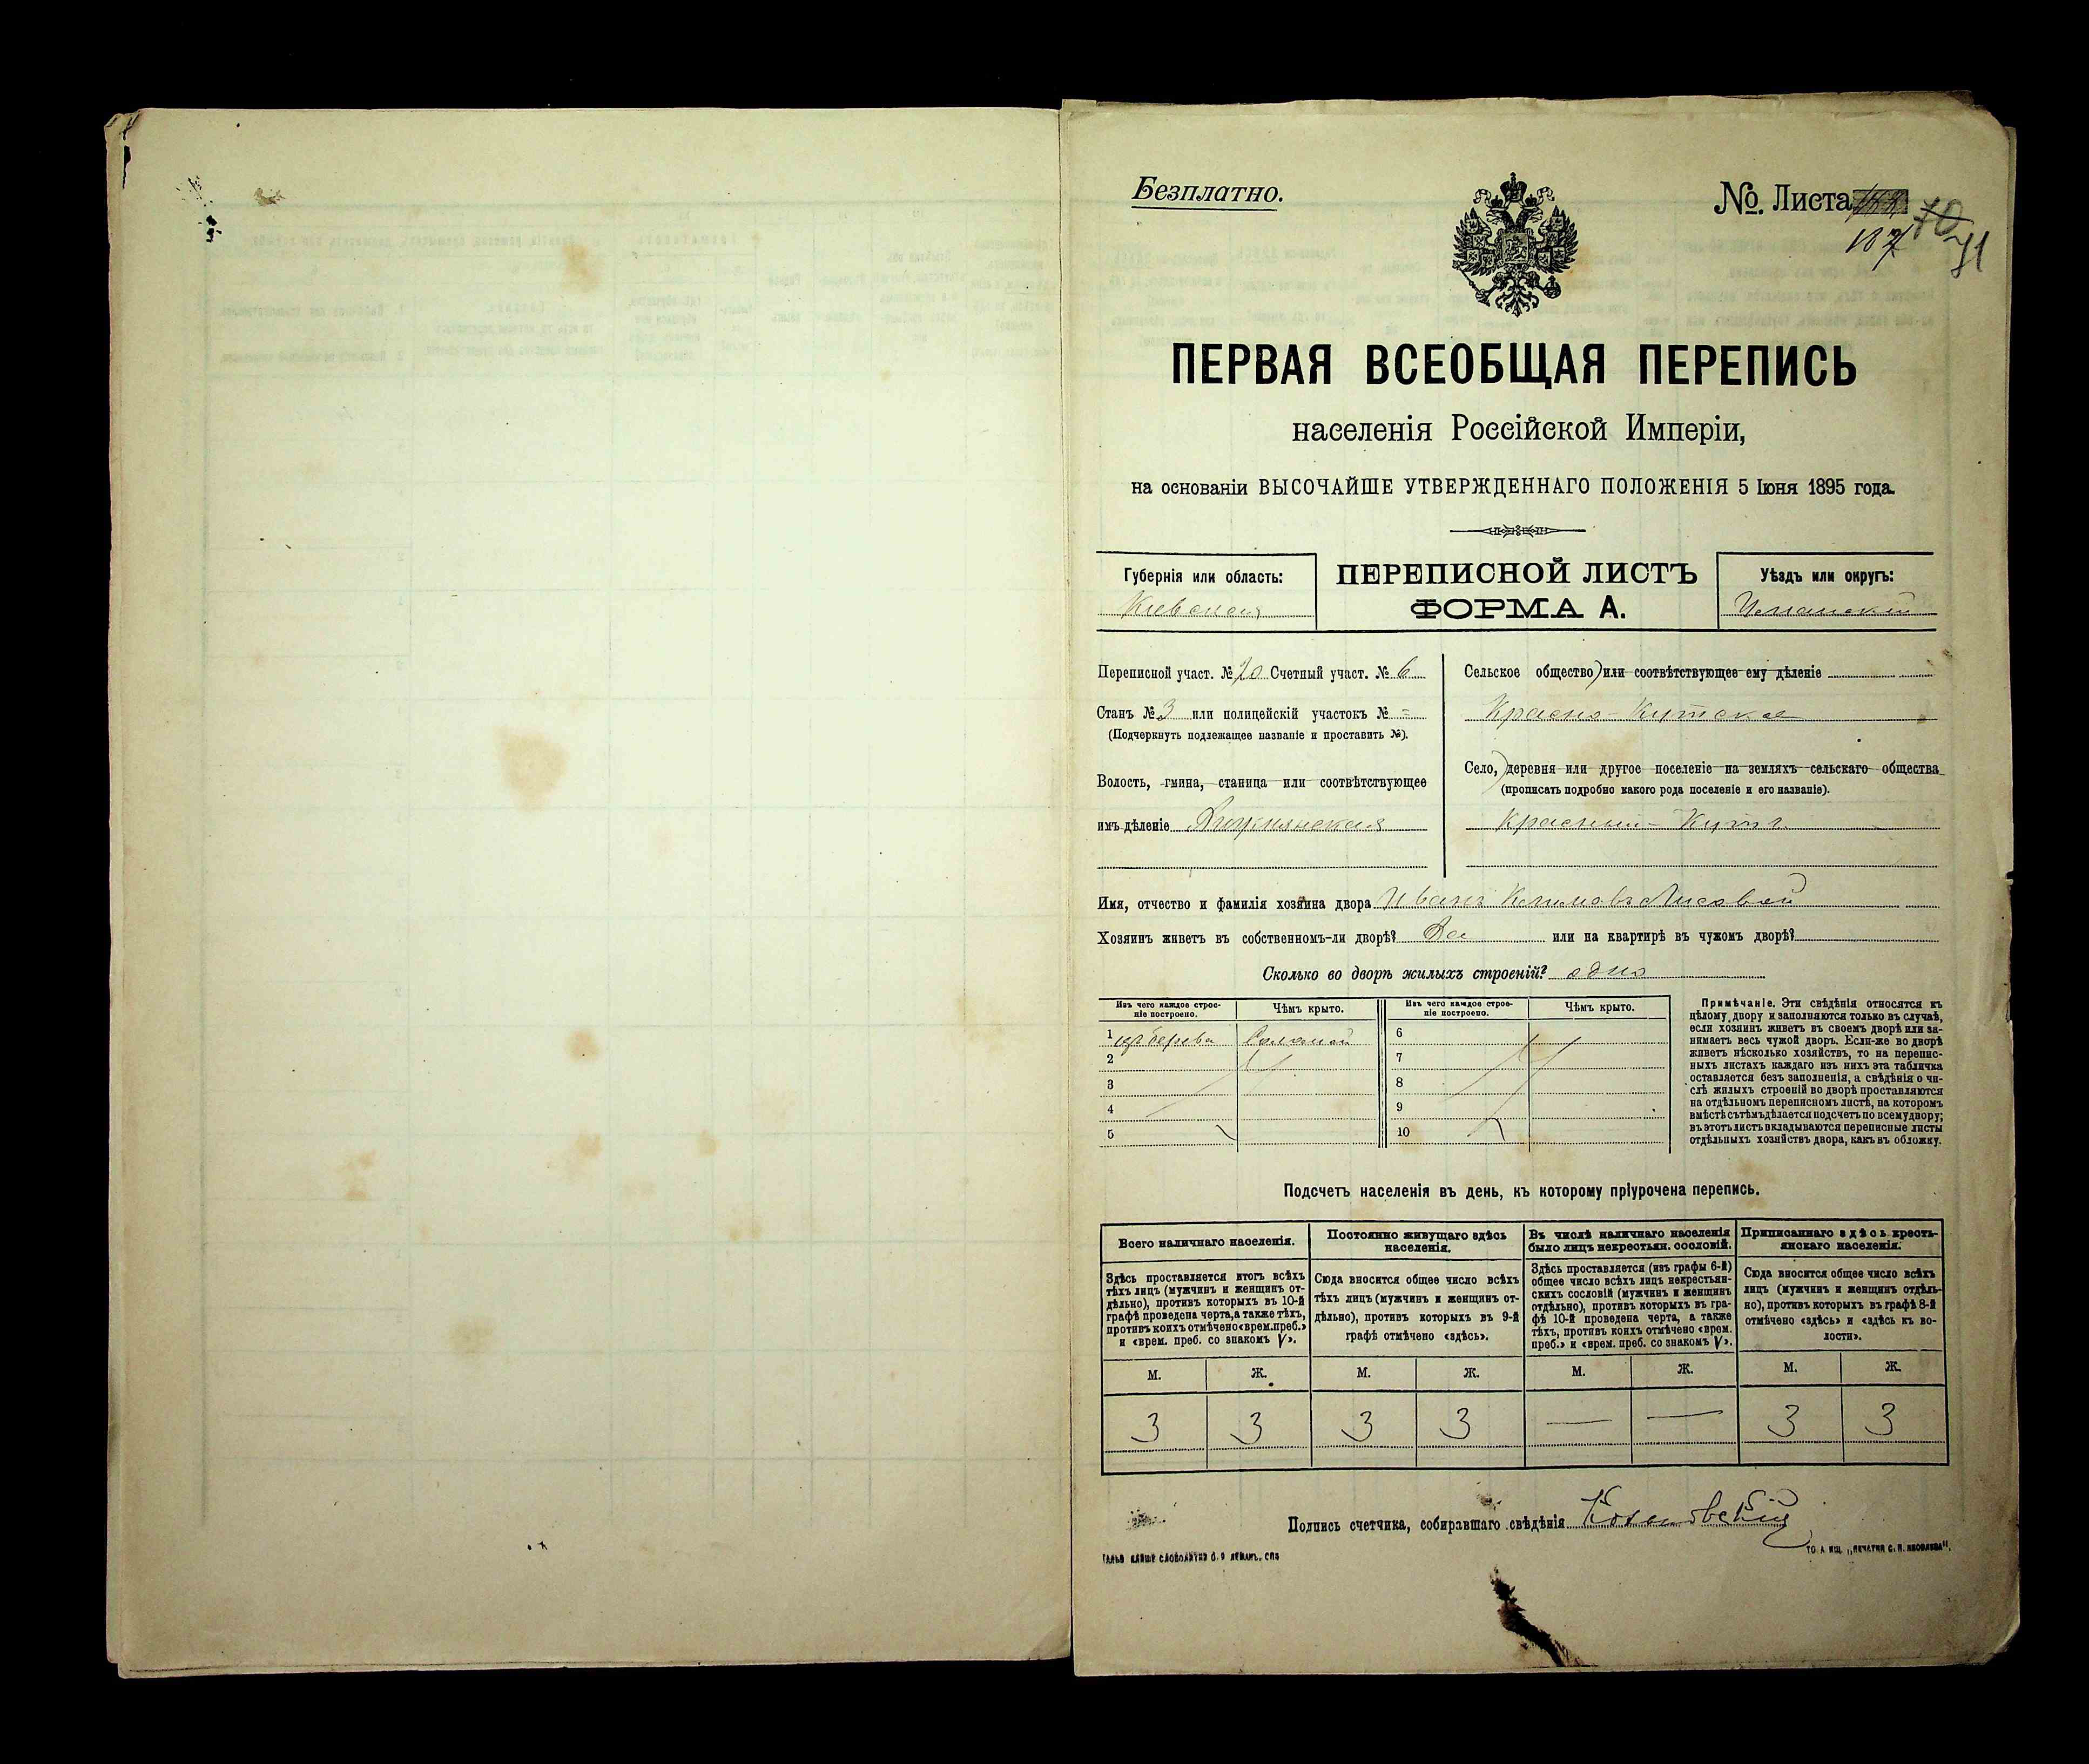 Безплатно.
№. Листа
187 71
ПЕРВАЯ ВСЕОБЩАЯ ПЕРЕПИСЬ
населенія Россійской Имперіи,
на основаніи ВЫСОЧАЙШЕ УТВЕРЖДЕННАГО ПОЛОЖЕНІЯ 5 Іюня 1895 года.
Губернія или область:
Киевская
ПЕРЕПИСНОЙ ЛИСТЪ
ФОРМА А.
Уѣздъ или округъ:
Уманский
Переписной участ. № 20 Счетный участ. № 6
Станъ № 3 или полицейскій участокъ № =
(Подчеркнуть подлежащее названіе и проставить №).
Волость, гмина, станица или соотвѣтствующее
имъ дѣленіе
Сельское общество) или соотвѣтствующее ему дѣленіе
Красно-Кутское
Село,) деревня или другое поселеніе на земляхъ сельскаго общества
(прописать подробно какого рода поселеніе и его названіе).
Красный-Кутъ
Имя, отчество и фамилія хозяина двора Иванъ Климовъ Лисовой
Хозяинъ живетъ въ собственномъ-ли дворѣ? Да или на квартирѣ въ чужомъ дворѣ?
Сколько во дворѣ жилыхъ строеній? одно
Изъ чего каждое строе-
ніе построено.
Чѣмъ крыто.
Изъ чего каждое строе-
ніе построено.
Чѣмъ крыто.
1 изъ дерева Соломой
2
3
4
5
6
7
8
9
10
Примѣчаніе. Эти свѣдѣнія относятся къ
цѣлому двору и заполняются только въ случаѣ,
если хозяинъ живетъ въ своемъ дворѣ или за-
нимаетъ весь чужой дворъ. Если-же во дворѣ
живетъ нѣсколько хозяйствъ, то на перепис-
ныхъ листахъ каждаго изъ нихъ эта табличка
оставляется безъ заполненія, а свѣдѣнія о чи-
слѣ жилыхъ строеній во дворѣ проставляются
на отдѣльномъ переписномъ листѣ, на которомъ
вмѣстѣ съ тѣмъ дѣлается подсчетъ по всему двору;
въ этотъ листъ вкладываются переписные листы
отдѣльныхъ хозяйствъ двора, какъ въ обложку.
Подсчетъ населенія въ день, къ которому пріурочена перепись.
Всего наличнаго населенія.
Здѣсь проставляется итогъ всѣхъ
тѣхъ лицъ (мужчинъ и женщинъ от-
дѣльно), противъ которыхъ въ 10-й
графѣ проведена черта, а также тѣхъ,
противъ коихъ отмѣчено «врем. преб.»
и «врем. преб. со знакомъ V».
Постоянно живущаго здѣсь
населенія.
Сюда вносится общее число всѣхъ
тѣхъ лицъ (мужчинъ и женщинъ от-
дѣльно), противъ которыхъ въ 9-й
графѣ отмѣчено «здѣсь».
Въ числѣ наличнаго населенія
было лицъ некрестьян. сословій.
Здѣсь проставляется (изъ графы 6-й)
общее число всѣхъ лицъ некрестьян-
скихъ сословій (мужчинъ и женщинъ
отдѣльно), противъ которыхъ въ гра-
фѣ 10-й проведена черта, а также
тѣхъ, противъ коихъ отмѣчено «врем.
преб.» и «врем. преб. со знакомъ V».
Приписаннаго здѣсь кресть-
янскаго населенія.
Сюда вносится общее число всѣхъ
лицъ (мужчинъ и женщинъ отдѣль-
но), противъ которыхъ въ графѣ 8-й
отмѣчено «здѣсь» и «здѣсь къ во-
лости».
М. Ж. М. Ж. М. Ж. М. Ж.
3 3 3 3 — — 3 3
Подпись счетчика, собиравшаго свѣдѣнія